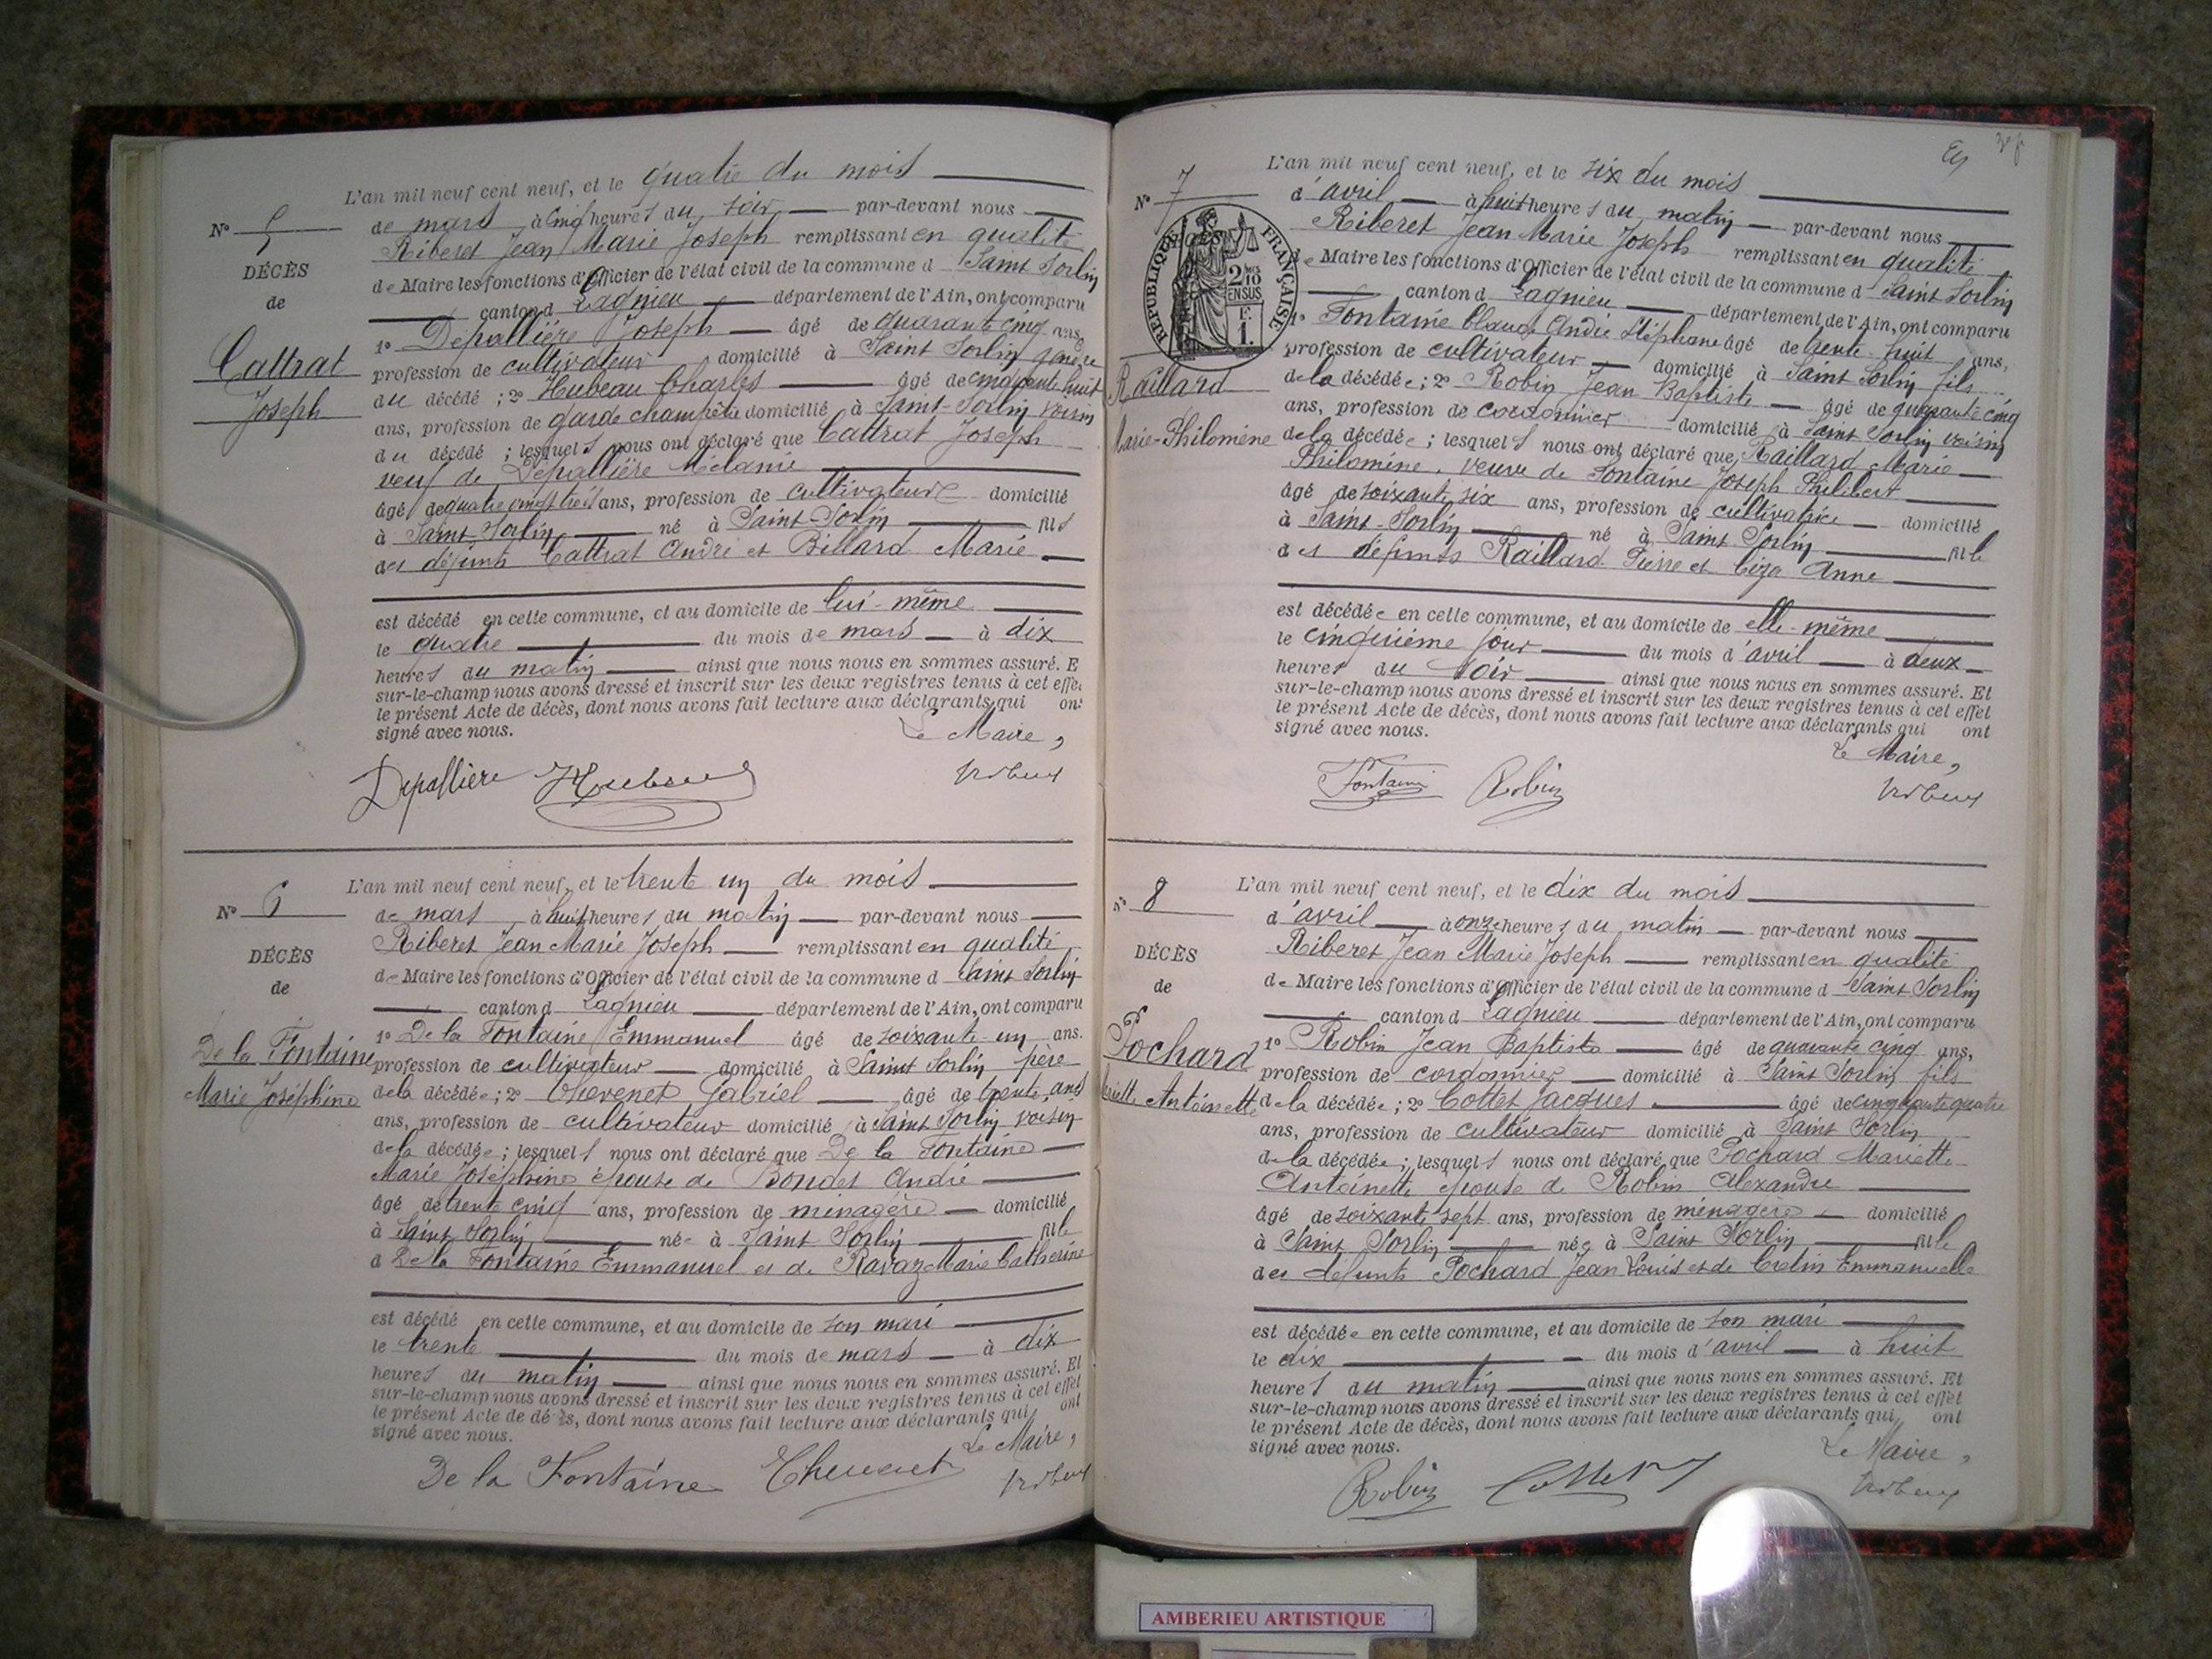 L'an mil neuf cent neuf, et le quatre du mois
N° 5
de mars à cinq heures du soir par-devant nous
Riberet Jean Marie Joseph remplissant en qualité
DÉCÈS
de Maire les fonctions d'Officier de l'état civil de la commune d Saint Sorlin
de
canton d Lagnieu département de l'Ain, ont comparu
1° Depallière Joseph âgé de quarante cinq ans,
Cattrat
profession de cultivateur domicilié à Saint Sorlin gendre
Joseph
du décédé ; 2° Hubeau Charles âgé de cinquante huit
ans, profession de garde champêtre domicilié à Saint-Sorlin voisin
du décédé ; lesquels nous ont déclaré que Cattrat Joseph
veuf de Depallière Mélanie
âgé de quatre vingt trois ans, profession de cultivateur domicilié
à Saint Sorlin né à Saint-Sorlin fils
des défunts Cattrat André et Billard Marie
est décédé en cette commune, et au domicile de lui-même
le quatre du mois de mars à dix
heures du matin ainsi que nous nous en sommes assuré. E
sur-le-champ nous avons dressé et inscrit sur les deux registres tenus à cet effe
le présent Acte de décès, dont nous avons fait lecture aux déclarants qui ont
signé avec nous.
Le Maire,
Depallière Hubeau Riberet
L'an mil neuf cent neuf, et le trente un du mois
N° 6
de mars à huit heures du matin par-devant nous
Riberet Jean Marie Joseph remplissant en qualité
DÉCÈS
de Maire les fonctions d'Officier de l'état civil de la commune d Saint Sorlin
de
canton d Lagnieu département de l'Ain, ont comparu
1° De la Fontaine Emmanuel âgé de soixante un ans.
De la Fontaine
profession de cultivateur domicilié à Saint Sorlin père
Marie Joséphine
de la décédée ; 2° Chevenet Gabriel âgé de trente ans
ans, profession de cultivateur domicilié à Saint Sorlin voisin
de la décédée ; lesquels nous ont déclaré que De la Fontaine
Marie Joséphine épouse de Bondet André
âgé de trente cinq ans, profession de ménagère domicilié
à Saint Sorlin née à Saint Sorlin fille
d De la Fontaine Emmanuel et de Ravaz Marie Catherine
est décédé en cette commune, et au domicile de son mari
le trente du mois de mars à dix
heures du matin ainsi que nous nous en sommes assuré. Et
sur-le-champ nous avons dressé et inscrit sur les deux registres tenus à cet effet
le présent Acte de décès, dont nous avons fait lecture aux déclarants qui ont
signé avec nous.
Le Maire,
De la Fontaine Chevenet Riberet
L'an mil neuf cent neuf, et le six du mois
N° 7
d'avril à huit heures du matin par-devant nous
Riberet Jean Marie Joseph remplissant en qualité
de Maire les fonctions d'Officier de l'état civil de la commune d Saint Sorlin
canton d Lagnieu département de l'Ain, ont comparu
RÉPUBLIQUE FRANÇAISE
2/10 EN SUS
F. 1.
1° Fontaine Claude André Stéphane âgé de trente huit ans,
profession de cultivateur domicilié à Saint Sorlin fils
Raillard
de la décédée ; 2° Robin Jean Baptiste âgé de quarante cinq
ans, profession de cordonnier domicilié à Saint Sorlin voisin
Marie-Philomène
de la décédée ; lesquels nous ont déclaré que Raillard Marie
Philomène, veuve de Fontaine Joseph Philibert
âgé de soixante six ans, profession de cultivatrice domicilié
à Saint-Sorlin né à Saint Sorlin fille
des défunts Raillard Pierre et Ciza Anne
est décédée en cette commune, et au domicile de elle-même
le cinquième jour du mois d'avril à deux
heures du soir ainsi que nous nous en sommes assuré. Et
sur-le-champ nous avons dressé et inscrit sur les deux registres tenus à cet effet
le présent Acte de décès, dont nous avons fait lecture aux déclarants qui ont
signé avec nous.
Le Maire,
Fontaine Robin Riberet
L'an mil neuf cent neuf, et le dix du mois
N° 8
d'avril à onze heures du matin par-devant nous
Riberet Jean Marie Joseph remplissant en qualité
DÉCÈS
de Maire les fonctions d'Officier de l'état civil de la commune d Saint Sorlin
de
canton d Lagnieu département de l'Ain, ont comparu
Pochard
1° Robin Jean Baptiste âgé de quarante cinq ans,
profession de cordonnier domicilié à Saint Sorlin fils
Mariette Antoinette
de la décédée ; 2° Cottet Jacques âgé de cinquante quatre
ans, profession de cultivateur domicilié à Saint Sorlin
de la décédée ; lesquels nous ont déclaré que Pochard Mariette
Antoinette épouse de Robin Alexandre
âgé de soixante sept ans, profession de ménagère domicilié
à Saint Sorlin née à Saint Sorlin fille
des défunts Pochard Jean Louis et de Cretin Emmanuelle
est décédée en cette commune, et au domicile de son mari
le dix du mois d'avril à huit
heures du matin ainsi que nous nous en sommes assuré. Et
sur-le-champ nous avons dressé et inscrit sur les deux registres tenus à cet effet
le présent Acte de décès, dont nous avons fait lecture aux déclarants qui ont
signé avec nous.
Le Maire,
Robin Cottet Riberet
AMBERIEU ARTISTIQUE